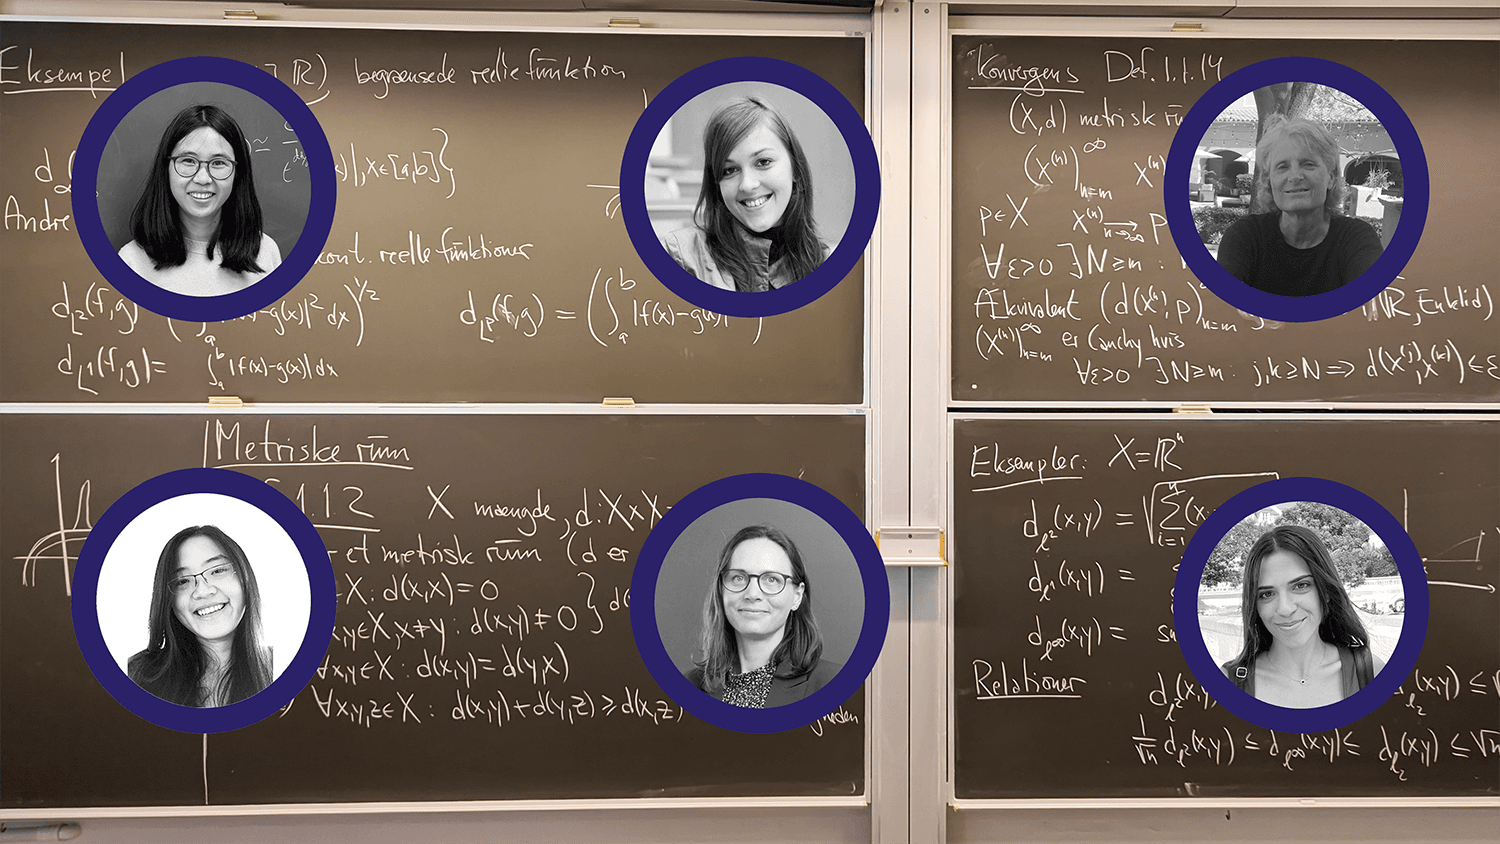 Eksempel ℝ) begrænsede reelle funktion
d∞ (x)|, x∈[a,b]}
Andre
kont. reelle funktioner
d_L²(f,g) -g(x)|² dx)^1/2
d_L²(f,g) = (∫_a^b |f(x)-g(x)|
d_L¹(f,g) = ∫_a^b |f(x)-g(x)| dx
Konvergens Def. 1.1.14
(X,d) metrisk
(x^(n))^∞_n=m x^(n)
p∈X x^(n) →_n→∞ p
∀ε>0 ∃N≥m :
Ækvivalent (d(x^(n), p) n=m (ℝ, Euklid)
(x^(n))^∞_n=m er Cauchy hvis
∀ε>0 ∃N≥m : j,k≥N ⇒ d(x^(j), x^(k)) ≤ ε
Metriske rum
1.1.2 X mængde, d: X×X
et metrisk rum (d er
X: d(x,x)=0
x,y∈X, x≠y : d(x,y)≠0
∀x,y∈X : d(x,y) = d(y,x)
∀x,y,z∈X : d(x,y)+d(y,z) ≥ d(x,z)
Eksempler: X=ℝⁿ
d_ℓ²(x,y) = √Σ_i=1^n (x
d_ℓ¹(x,y) =
d_ℓ∞(x,y) = su
Relationer
d_ℓ²(x,y) d_ℓ2(x,y) ≤ √
1/√n d_ℓ²(x,y) ≤ d_ℓ∞(x,y) ≤ d_ℓ2(x,y) ≤ √n